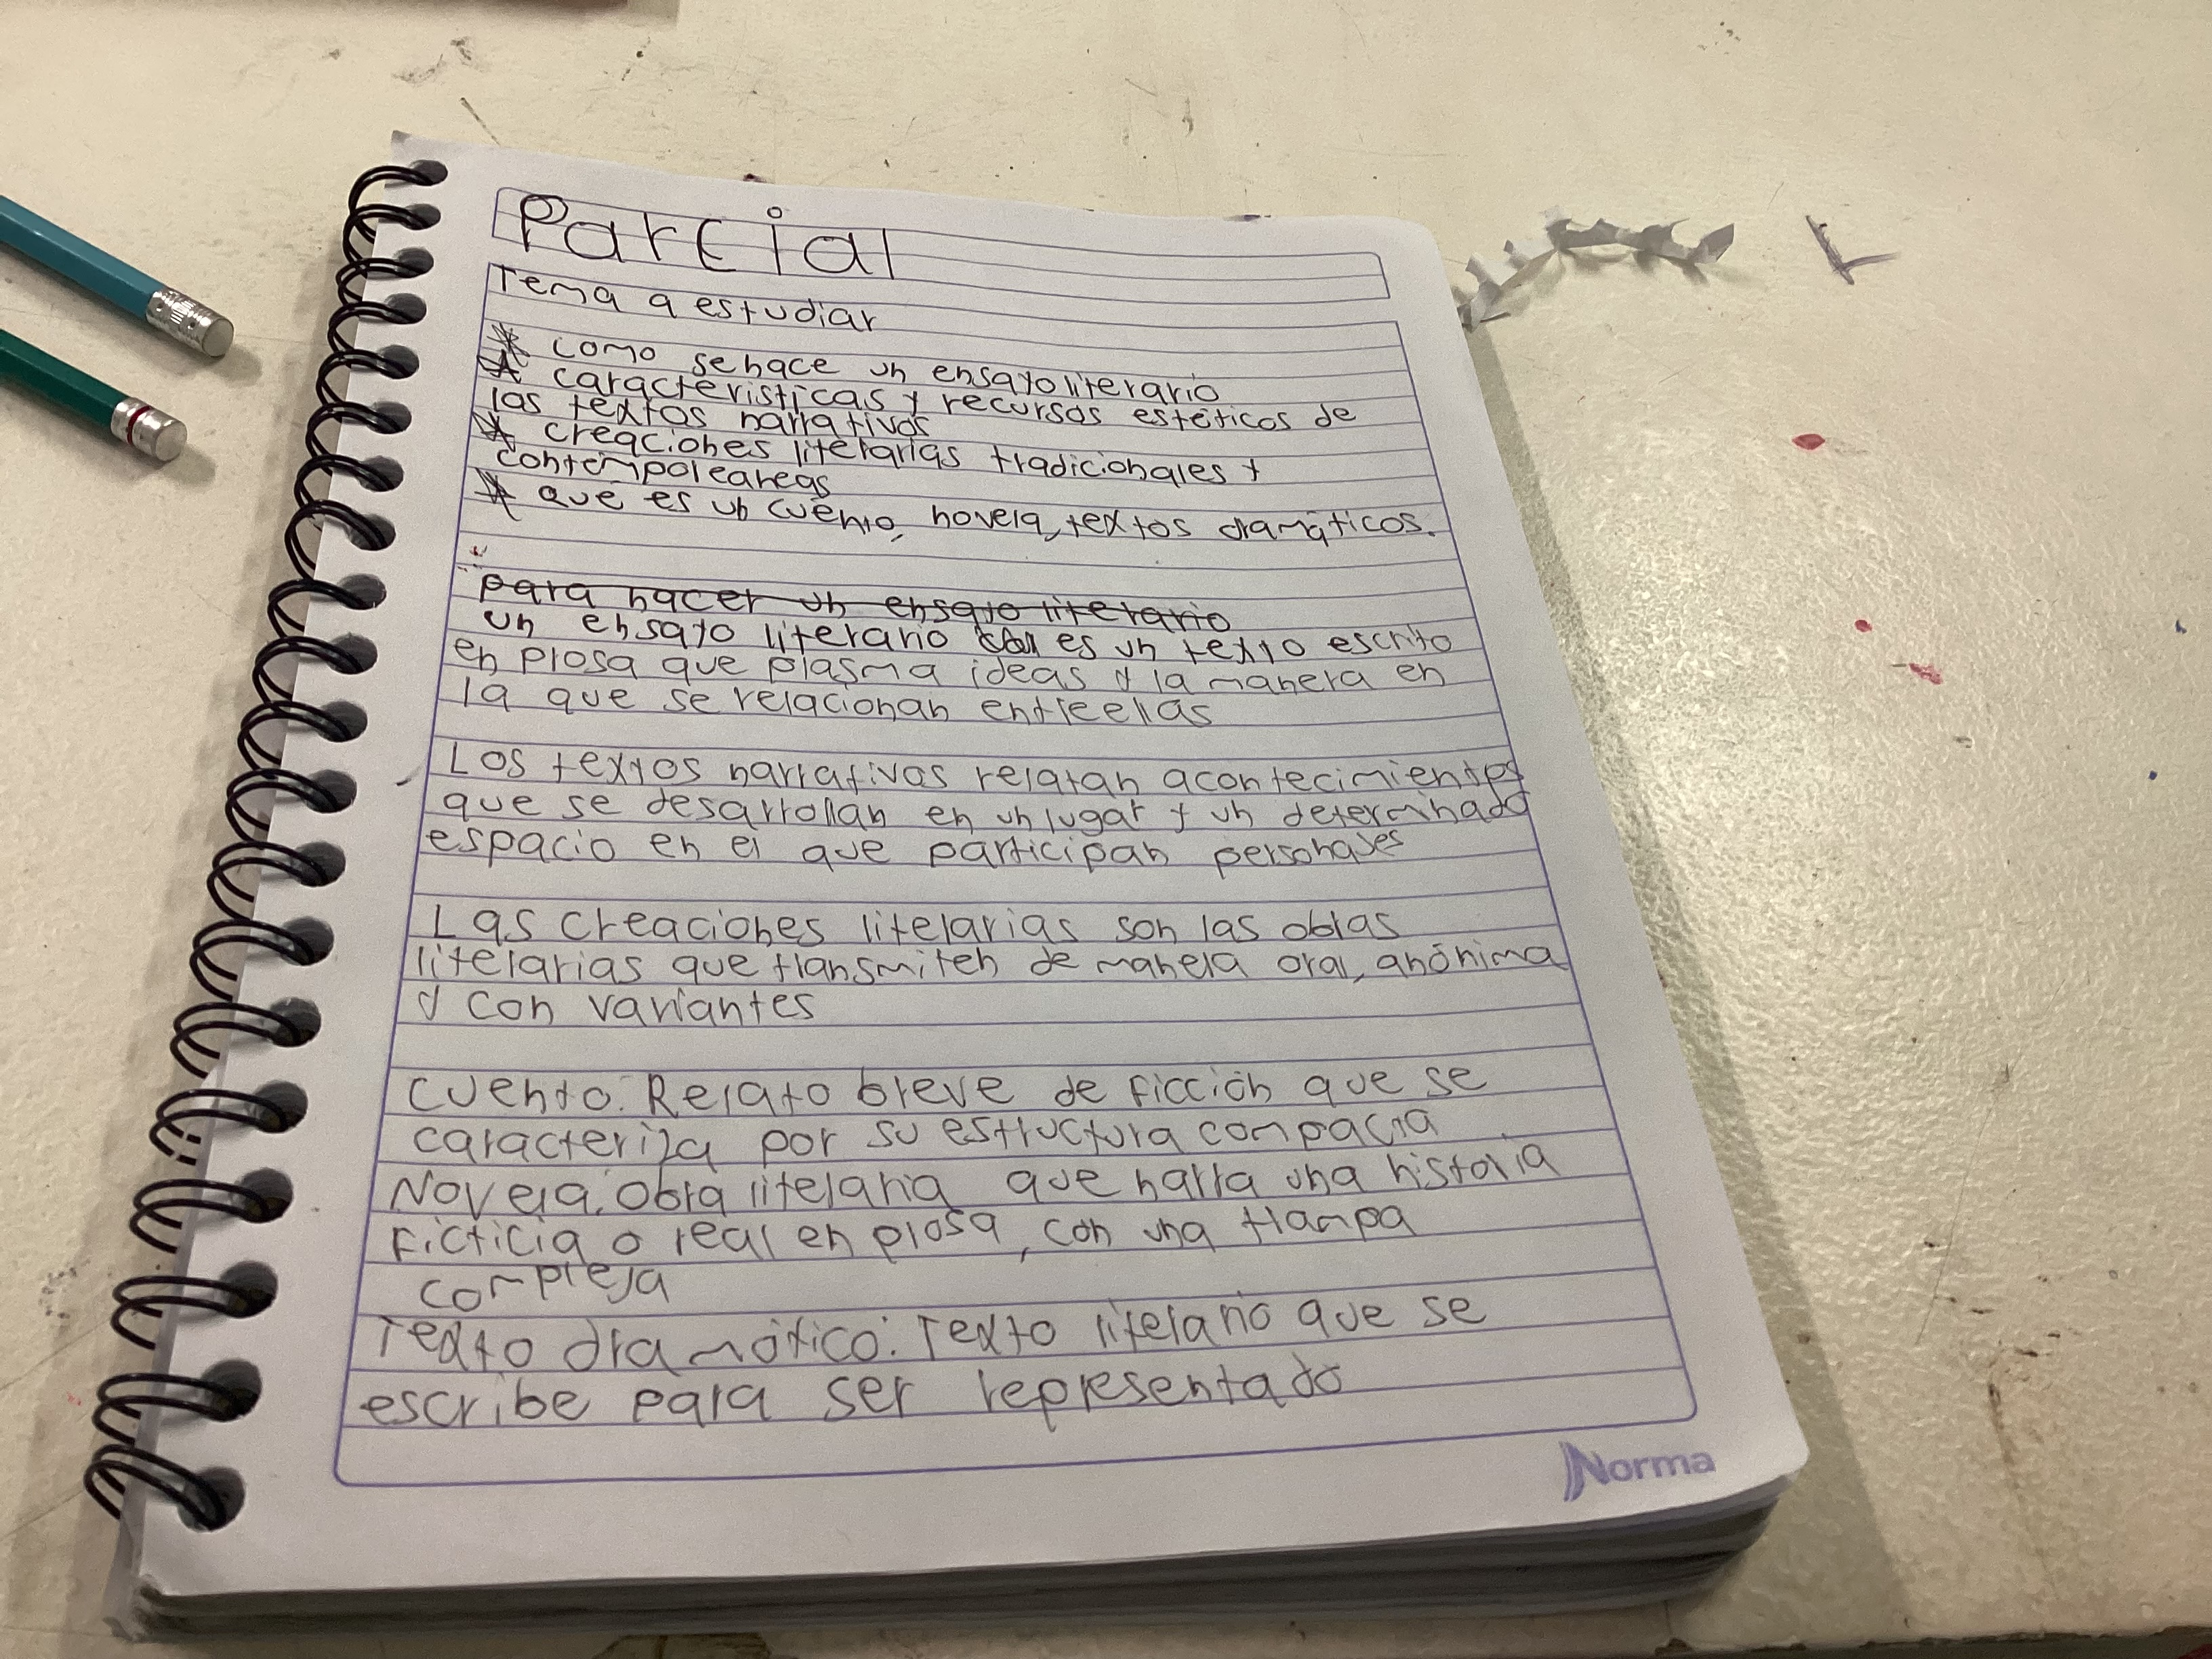 Parcial
Tema a estudiar
* como se hace un ensayo literario
* caracteristicas y recursos estéticos de
los textos narrativos
* creaciones literarias tradicionales y
contempoleareas
* que es un cuento, novela, textos dramáticos.
para hacer un ensayo literario
un ensayo literario es un texto escrito
en plosa que plasma ideas y la manera en
la que se relacionan entre ellas
Los textos narrativos relatan acontecimientos
que se desarrollan en un lugar y un determinado
espacio en el que participan personajes
Las creaciones litelarias son las oblas
litelarias que tlansmiten de manela oral, anónima
y con variantes
cuento: Relato breve de ficción que se
caracteriza por su estructura compacta
Novela: Obra litelaria que narra una historia
Ficticia o real en plosa, con una tlampa
compleja
Texto dramático: Texto litelario que se
escribe para ser representado
Norma